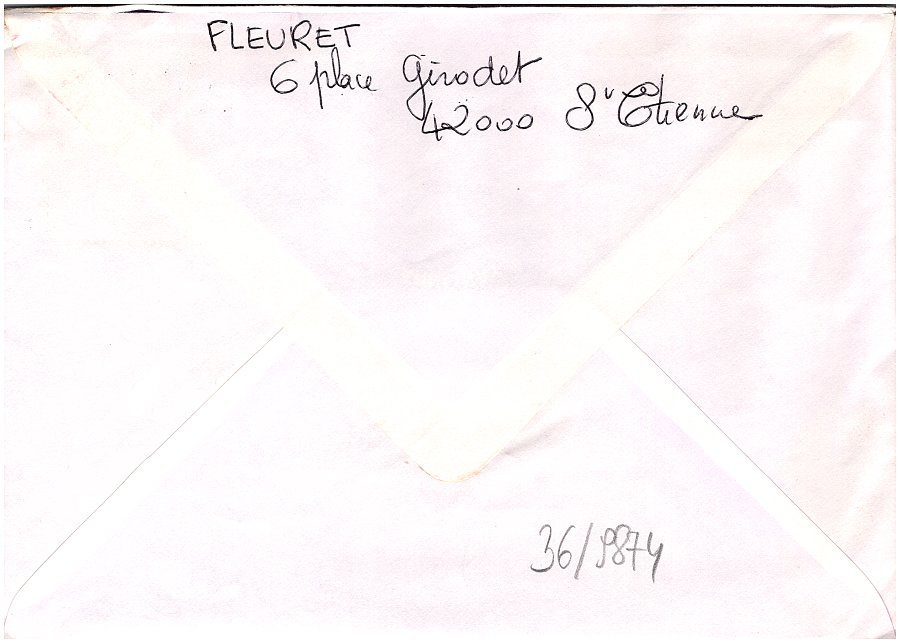 FLEURET
6 place Girodet
42000 St Etienne
36/9874